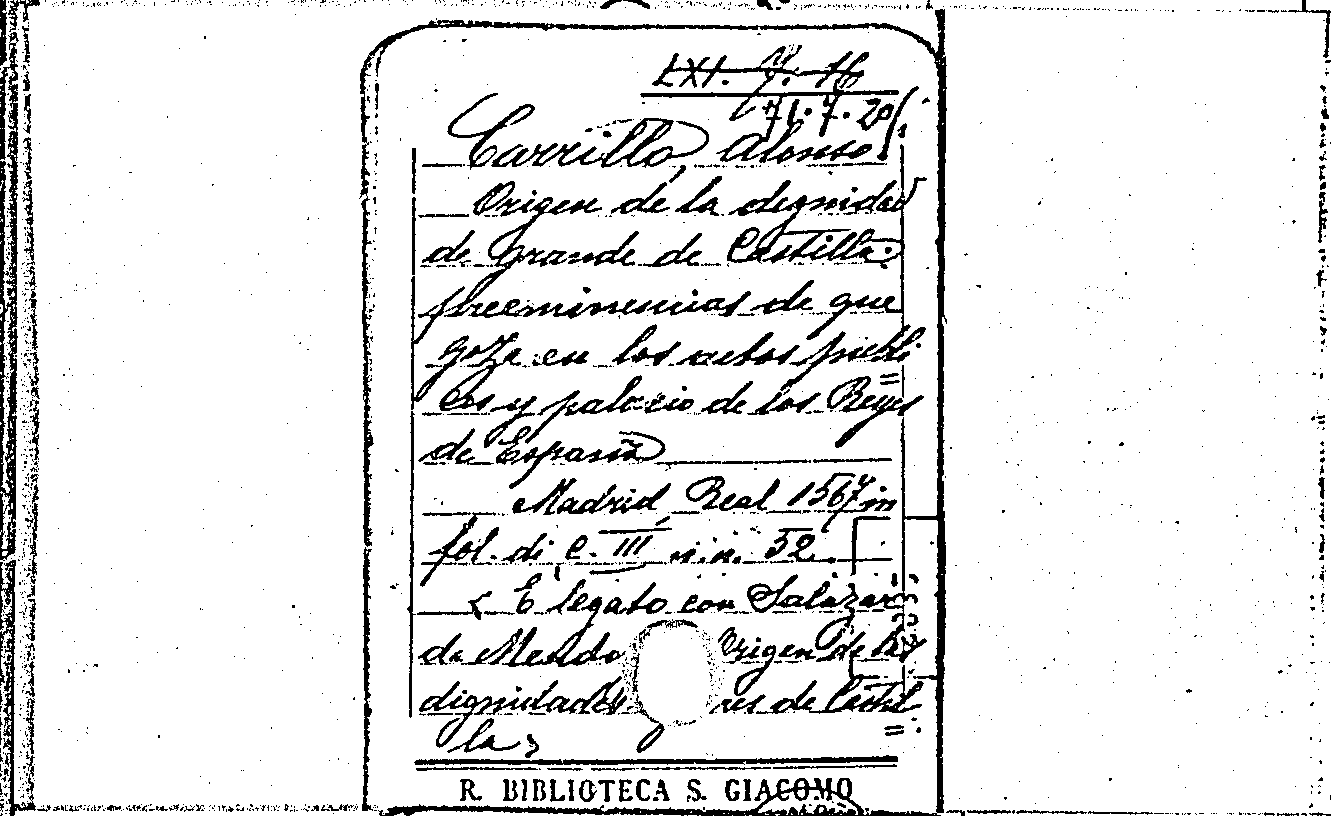 LXI. 7. 16
71.7.20
Carrillo, Alonso.
Origen de la dignidad
de Grande de Castilla.
preeminencias de que
goza en los actos publi
cos y palacio de los Reyes
de España
Madrid, Real 1567 in
fol. di C. III n.n. 52.
< E legato con Salazar
de Mendo rigen de las
dignidades res de Castil
la >
R. BIBLIOTECA S. GIACOMO